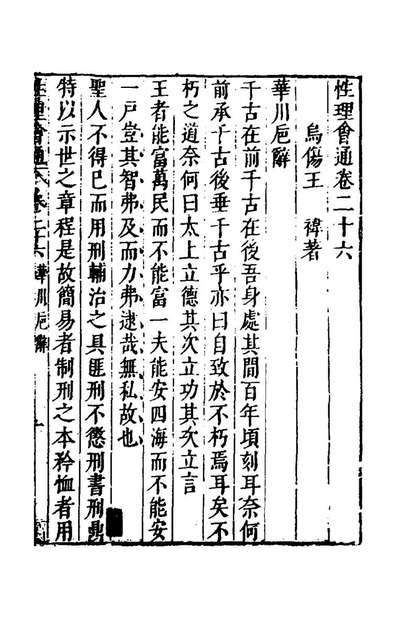 性理會通卷二十六
烏傷王　禕著
華川卮辭
千古在前千古在後吾身處其間百年頃刻耳奈何
前承千古後垂千古乎亦曰自致於不朽焉耳矣不
朽之道奈何曰太上立德其次立功其次立言
王者能富萬民而不能富一夫能安四海而不能安
一戶豈其智弗及而力弗逮哉無私故也
聖人不得已而用刑輔治之具匪刑不懲刑書刑鼎
特以示世之章程是故簡易者制刑之本矜恤者用
性理會通 卷二十六 華川卮辭 一